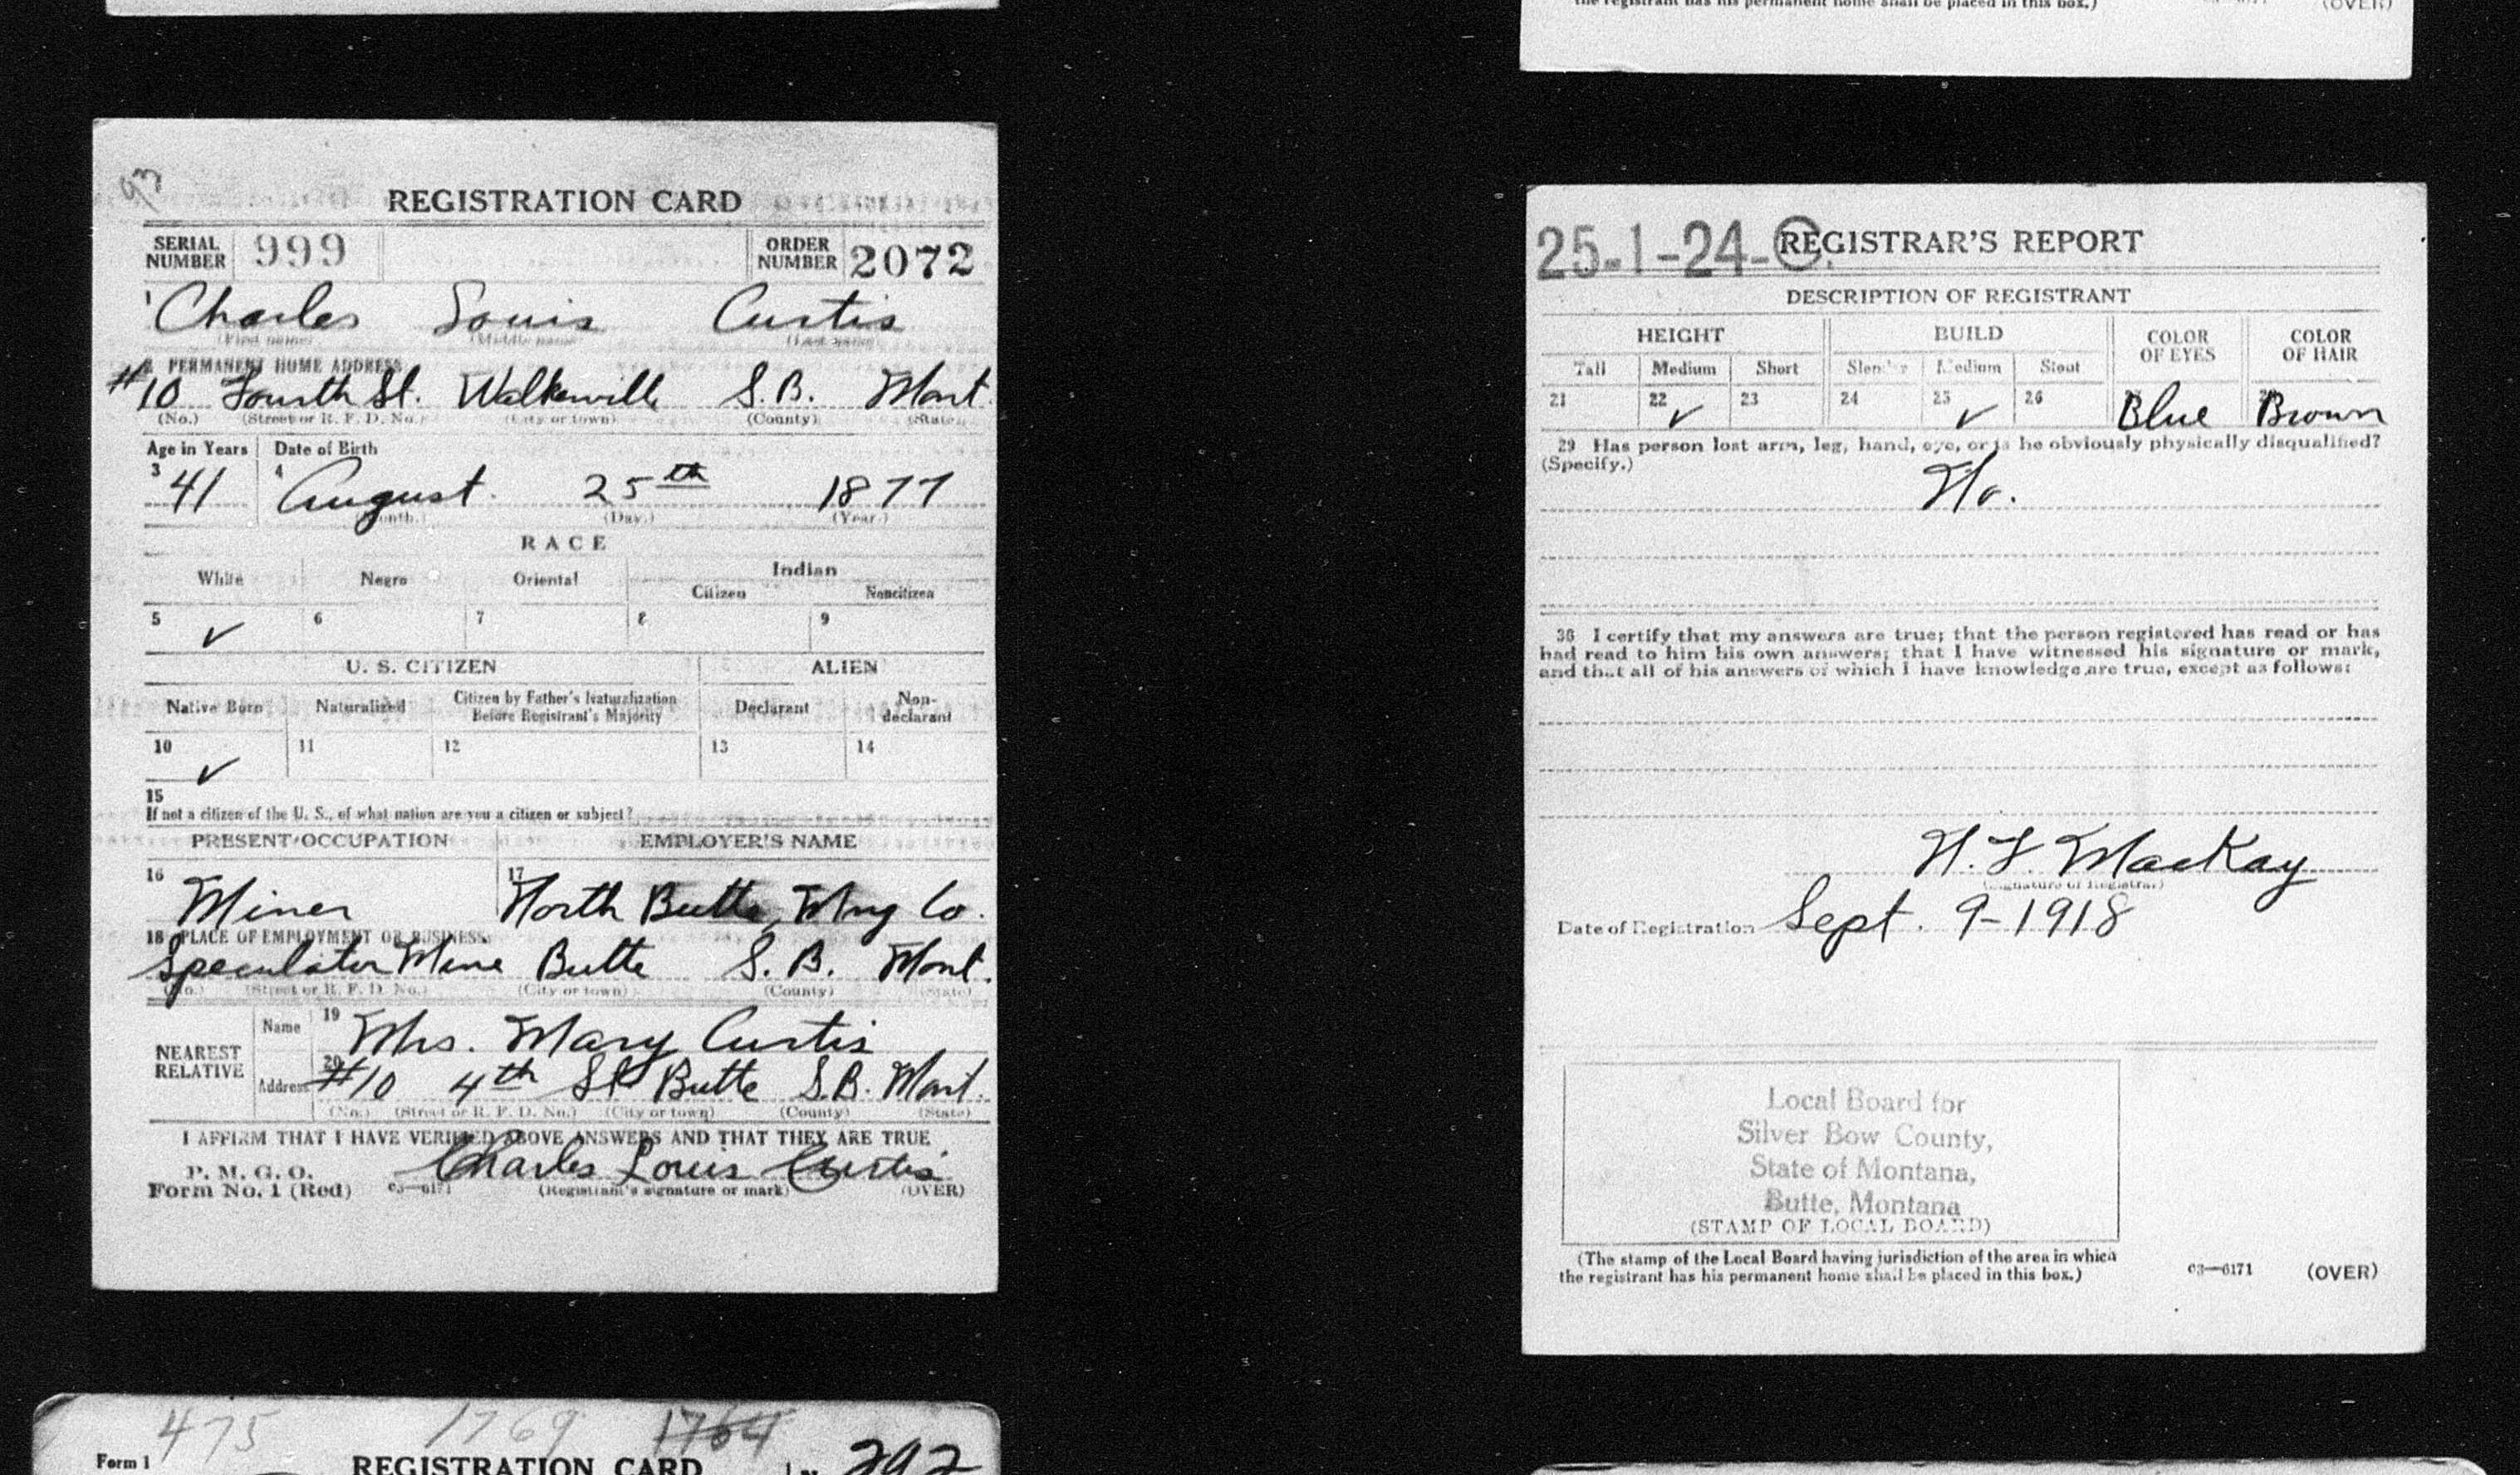 the registrant has his permanent home shall be placed in this box.)
(OVER)
93
REGISTRATION CARD
SERIAL NUMBER 999 ORDER NUMBER 2072
1 Charles Louis Curtis
(First name) (Middle name) (Last name)
2 PERMANENT HOME ADDRESS
#10 Fourth St. Walkerville S.B. Mont.
(No.) (Street or R. F. D. No.) (City or town) (County) (State)
Age in Years Date of Birth
3 41 4 August 25th 1877
(Month.) (Day.) (Year.)
RACE
White Negro Oriental Indian
Citizen Noncitizen
5 ✓ 6 7 8 9
U. S. CITIZEN ALIEN
Native Born Naturalized Citizen by Father's Naturalization Before Registrant's Majority Declarant Non-declarant
10 ✓ 11 12 13 14
15
If not a citizen of the U. S., of what nation are you a citizen or subject?
PRESENT OCCUPATION EMPLOYER'S NAME
16 Miner 17 North Butte Mng Co.
18 PLACE OF EMPLOYMENT OR BUSINESS:
Speculator Mine Butte S. B. Mont.
(No.) (Street or R. F. D. No.) (City or town) (County) (State)
NEAREST RELATIVE
Name 19 Mrs. Mary Curtis
Address 20 #10 4th St Butte S.B. Mont.
(No.) (Street or R. F. D. No.) (City or town) (County) (State)
I AFFIRM THAT I HAVE VERIFIED ABOVE ANSWERS AND THAT THEY ARE TRUE
P. M. G. O.
Form No. 1 (Red) 03—6171 Charles Louis Curtis
(Registrant's signature or mark) (OVER)
475 1769 1764
Form 1 REGISTRATION CARD No. 292
25-1-24-C.
REGISTRAR'S REPORT
DESCRIPTION OF REGISTRANT
HEIGHT BUILD COLOR OF EYES COLOR OF HAIR
Tall Medium Short Slender Medium Stout
21 22 ✓ 23 24 25 ✓ 26 27 Blue 28 Brown
29 Has person lost arm, leg, hand, eye, or is he obviously physically disqualified?
(Specify.)
No.
30 I certify that my answers are true; that the person registered has read or has
had read to him his own answers; that I have witnessed his signature or mark,
and that all of his answers of which I have knowledge are true, except as follows:
H. F MacKay
(Signature of Registrar)
Date of Registration Sept. 9-1918
Local Board for
Silver Bow County,
State of Montana,
Butte, Montana
(STAMP OF LOCAL BOARD)
(The stamp of the Local Board having jurisdiction of the area in which
the registrant has his permanent home shall be placed in this box.)
03—6171 (OVER)